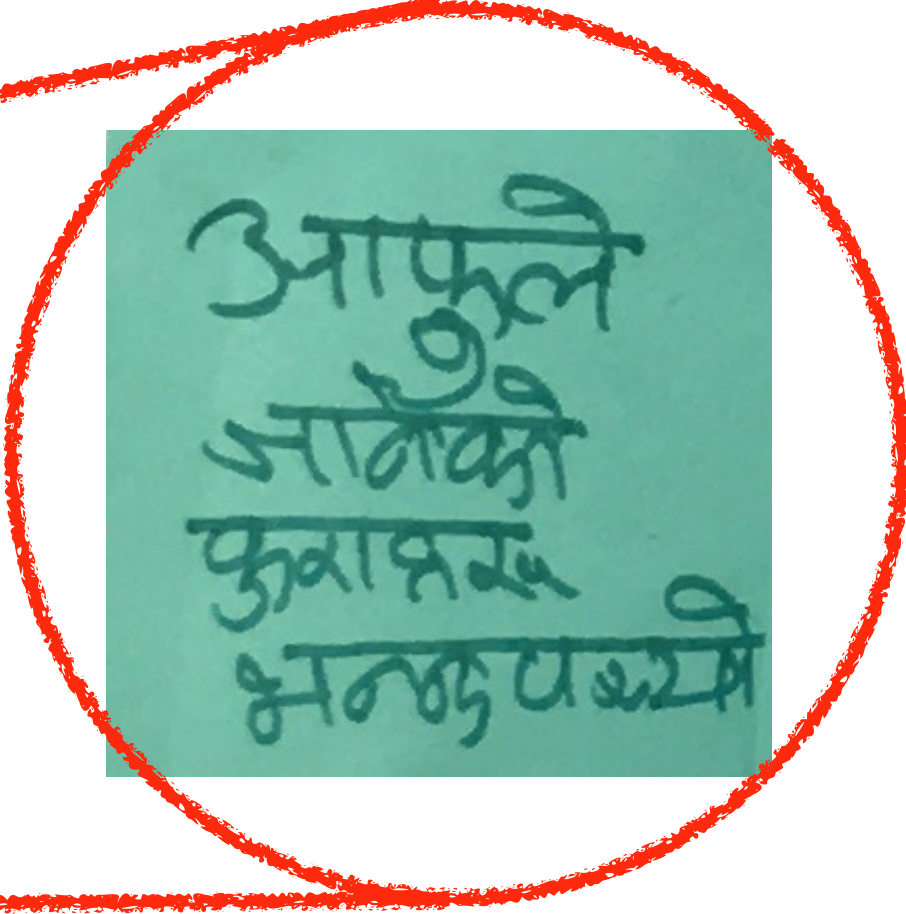 आफुले
जानेको
कुराहरू
भन्नु पर्‍यो